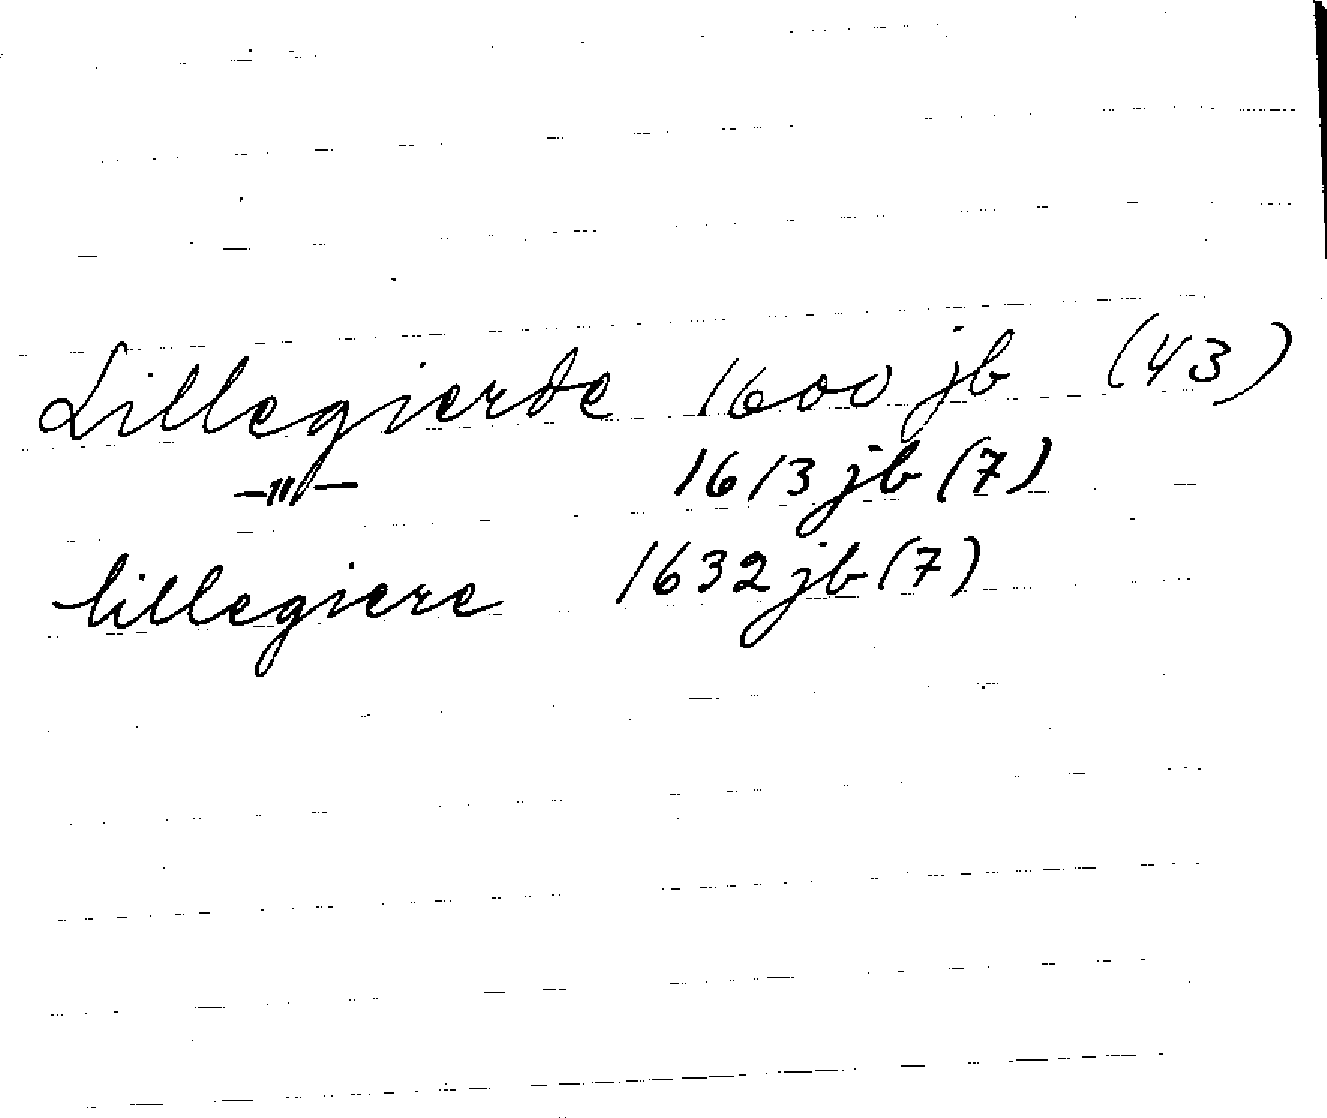 Lillegierde 1600 jb (43)
—"— 1613 jb (7)
lillegiere 1632 jb (7)